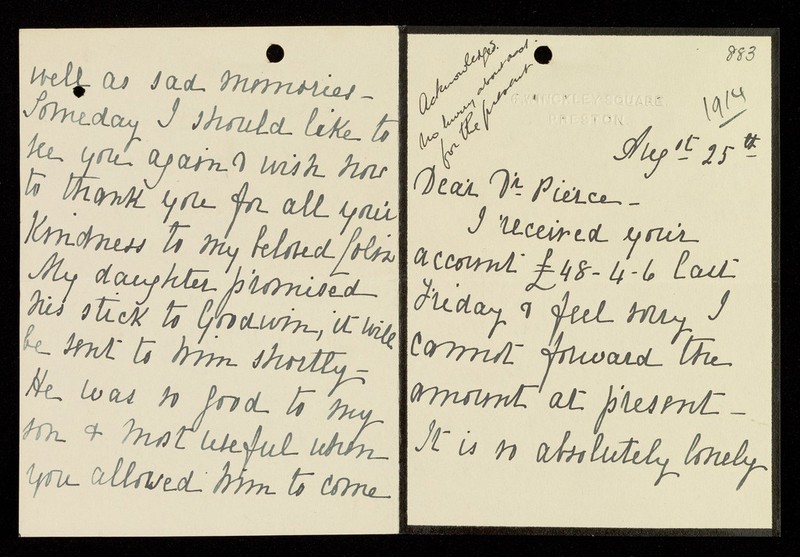 well as sad memories -
Someday I should like to
see you again & wish now
to thank you for all your
kindness to my beloved Colin
My daughter promised
his stick to Goodwin, it will
be sent to him shortly -
He was so good to my
son & most useful when
you allowed him to come
883
Acknowledged.
No hurry about acct.
for the present
6, WINCKLEY SQUARE
PRESTON
1914
Augst 25th
Dear Dr Pierce -
I received your
account £48-4-6 last
Friday & feel sorry I
cannot forward the
amount at present -
It is so absolutely lonely